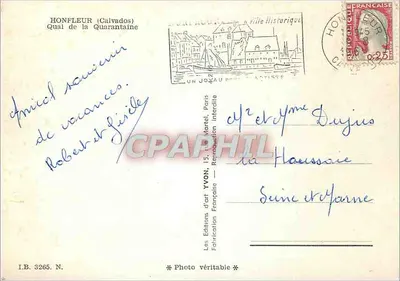 HONFLEUR (Calvados)
Quai de la Quarantaine
Ville Historique
HONFLEUR
FRANÇAISE
0,25
Amical souvenir
de vacances.
Robert et Gisèle
CPAPHIL
Les Editions d'art YVON, 15, Martel, Paris
Fabrication Française — Reproduction interdite
Mr et Mme
la Houssaie
Seine et Marne
I.B. 3265. N.
* Photo véritable *